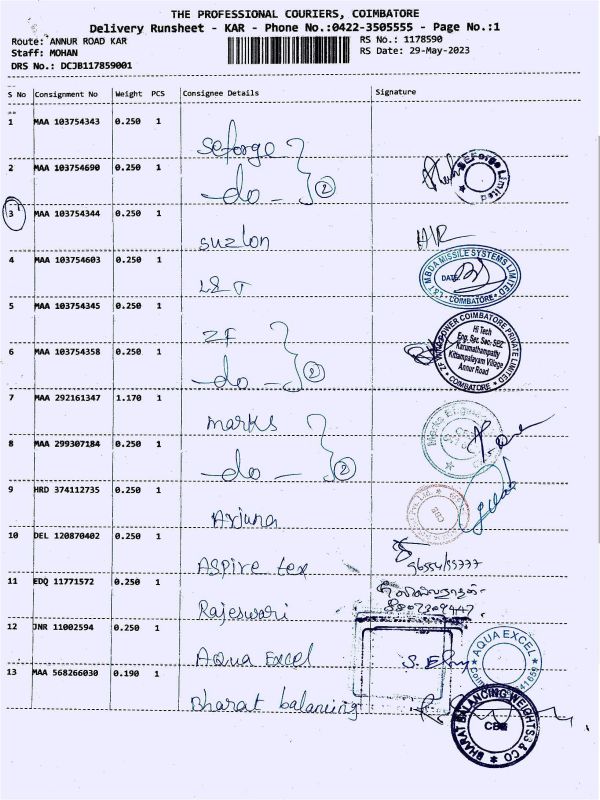 THE PROFESSIONAL COURIERS, COIMBATORE
Delivery Runsheet - KAR - Phone No.:0422-3505555 - Page No.:1
Route: ANNUR ROAD KAR
RS No.: 1178590
Staff: MOHAN
RS Date: 29-May-2023
DRS No.: DCJB117859001
S No Consignment No Weight PCS Consignee Details Signature
1 MAA 103754343 0.250 1 Seforge
2 MAA 103754690 0.250 1 -do- 2 SEForge Limited
3 MAA 103754344 0.250 1 suzlon
4 MAA 103754603 0.250 1 L&T
L&T MBDA MISSILE SYSTEMS LIMITED
DATE
COIMBATORE
5 MAA 103754345 0.250 1 ZF
6 MAA 103754358 0.250 1 -do- 2
ZF WIND POWER COIMBATORE PRIVATE LIMITED
Hi Tech
Eng. Ser. Sec- SEZ
Karumathampatty
Kittampalayam Village
Annur Road
COIMBATORE
7 MAA 292161347 1.170 1 marks
8 MAA 299307184 0.250 1 -do- 2
9 HRD 374112735 0.250 1 Arjuna
10 DEL 120870402 0.250 1 ASPire tex
11 EDQ 11771572 0.250 1 Rajeswari
12 JNR 11002594 0.250 1 Aqua Excel
AQUA EXCEL
13 MAA 568266030 0.190 1 Bharat balancing
BHARAT BALANCING WEIGHTS & CO
CBE